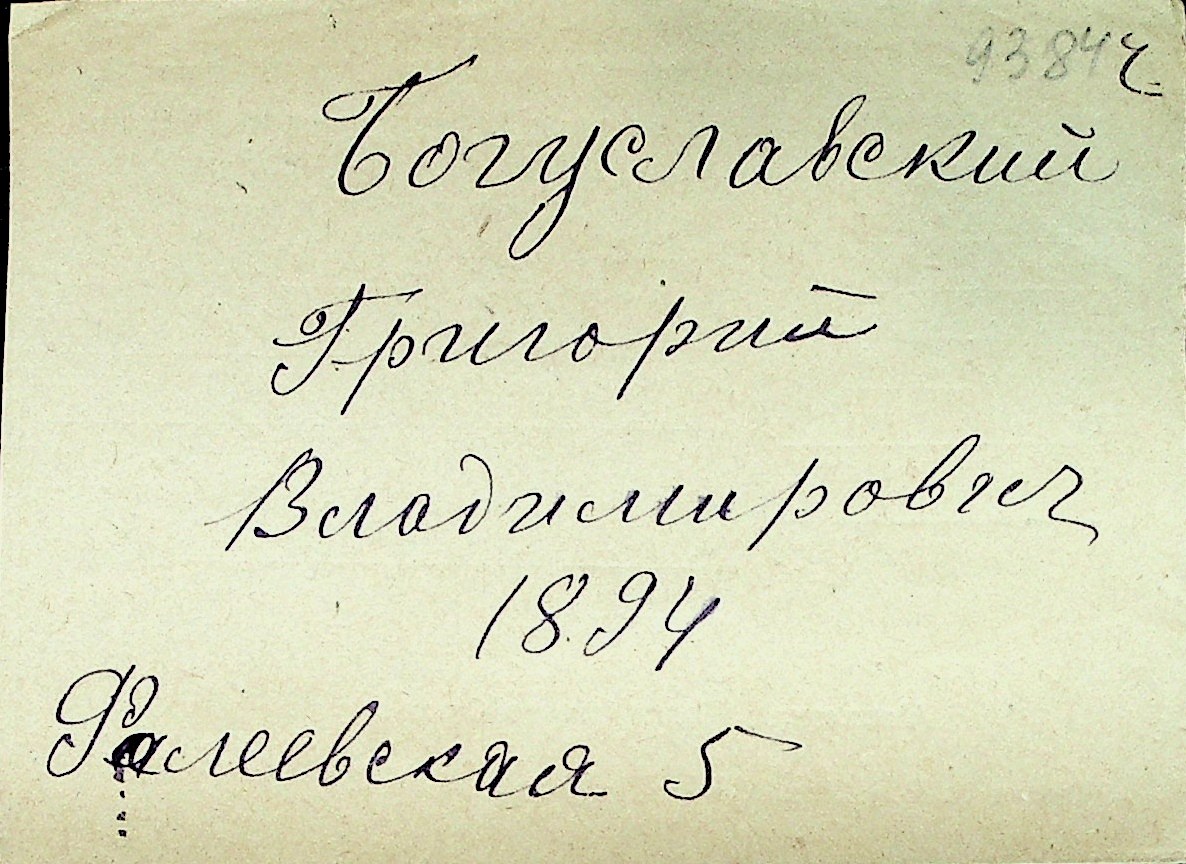 9384 ч
Богуславский
Григорий
Владимирович
1894
Фалеевская 5